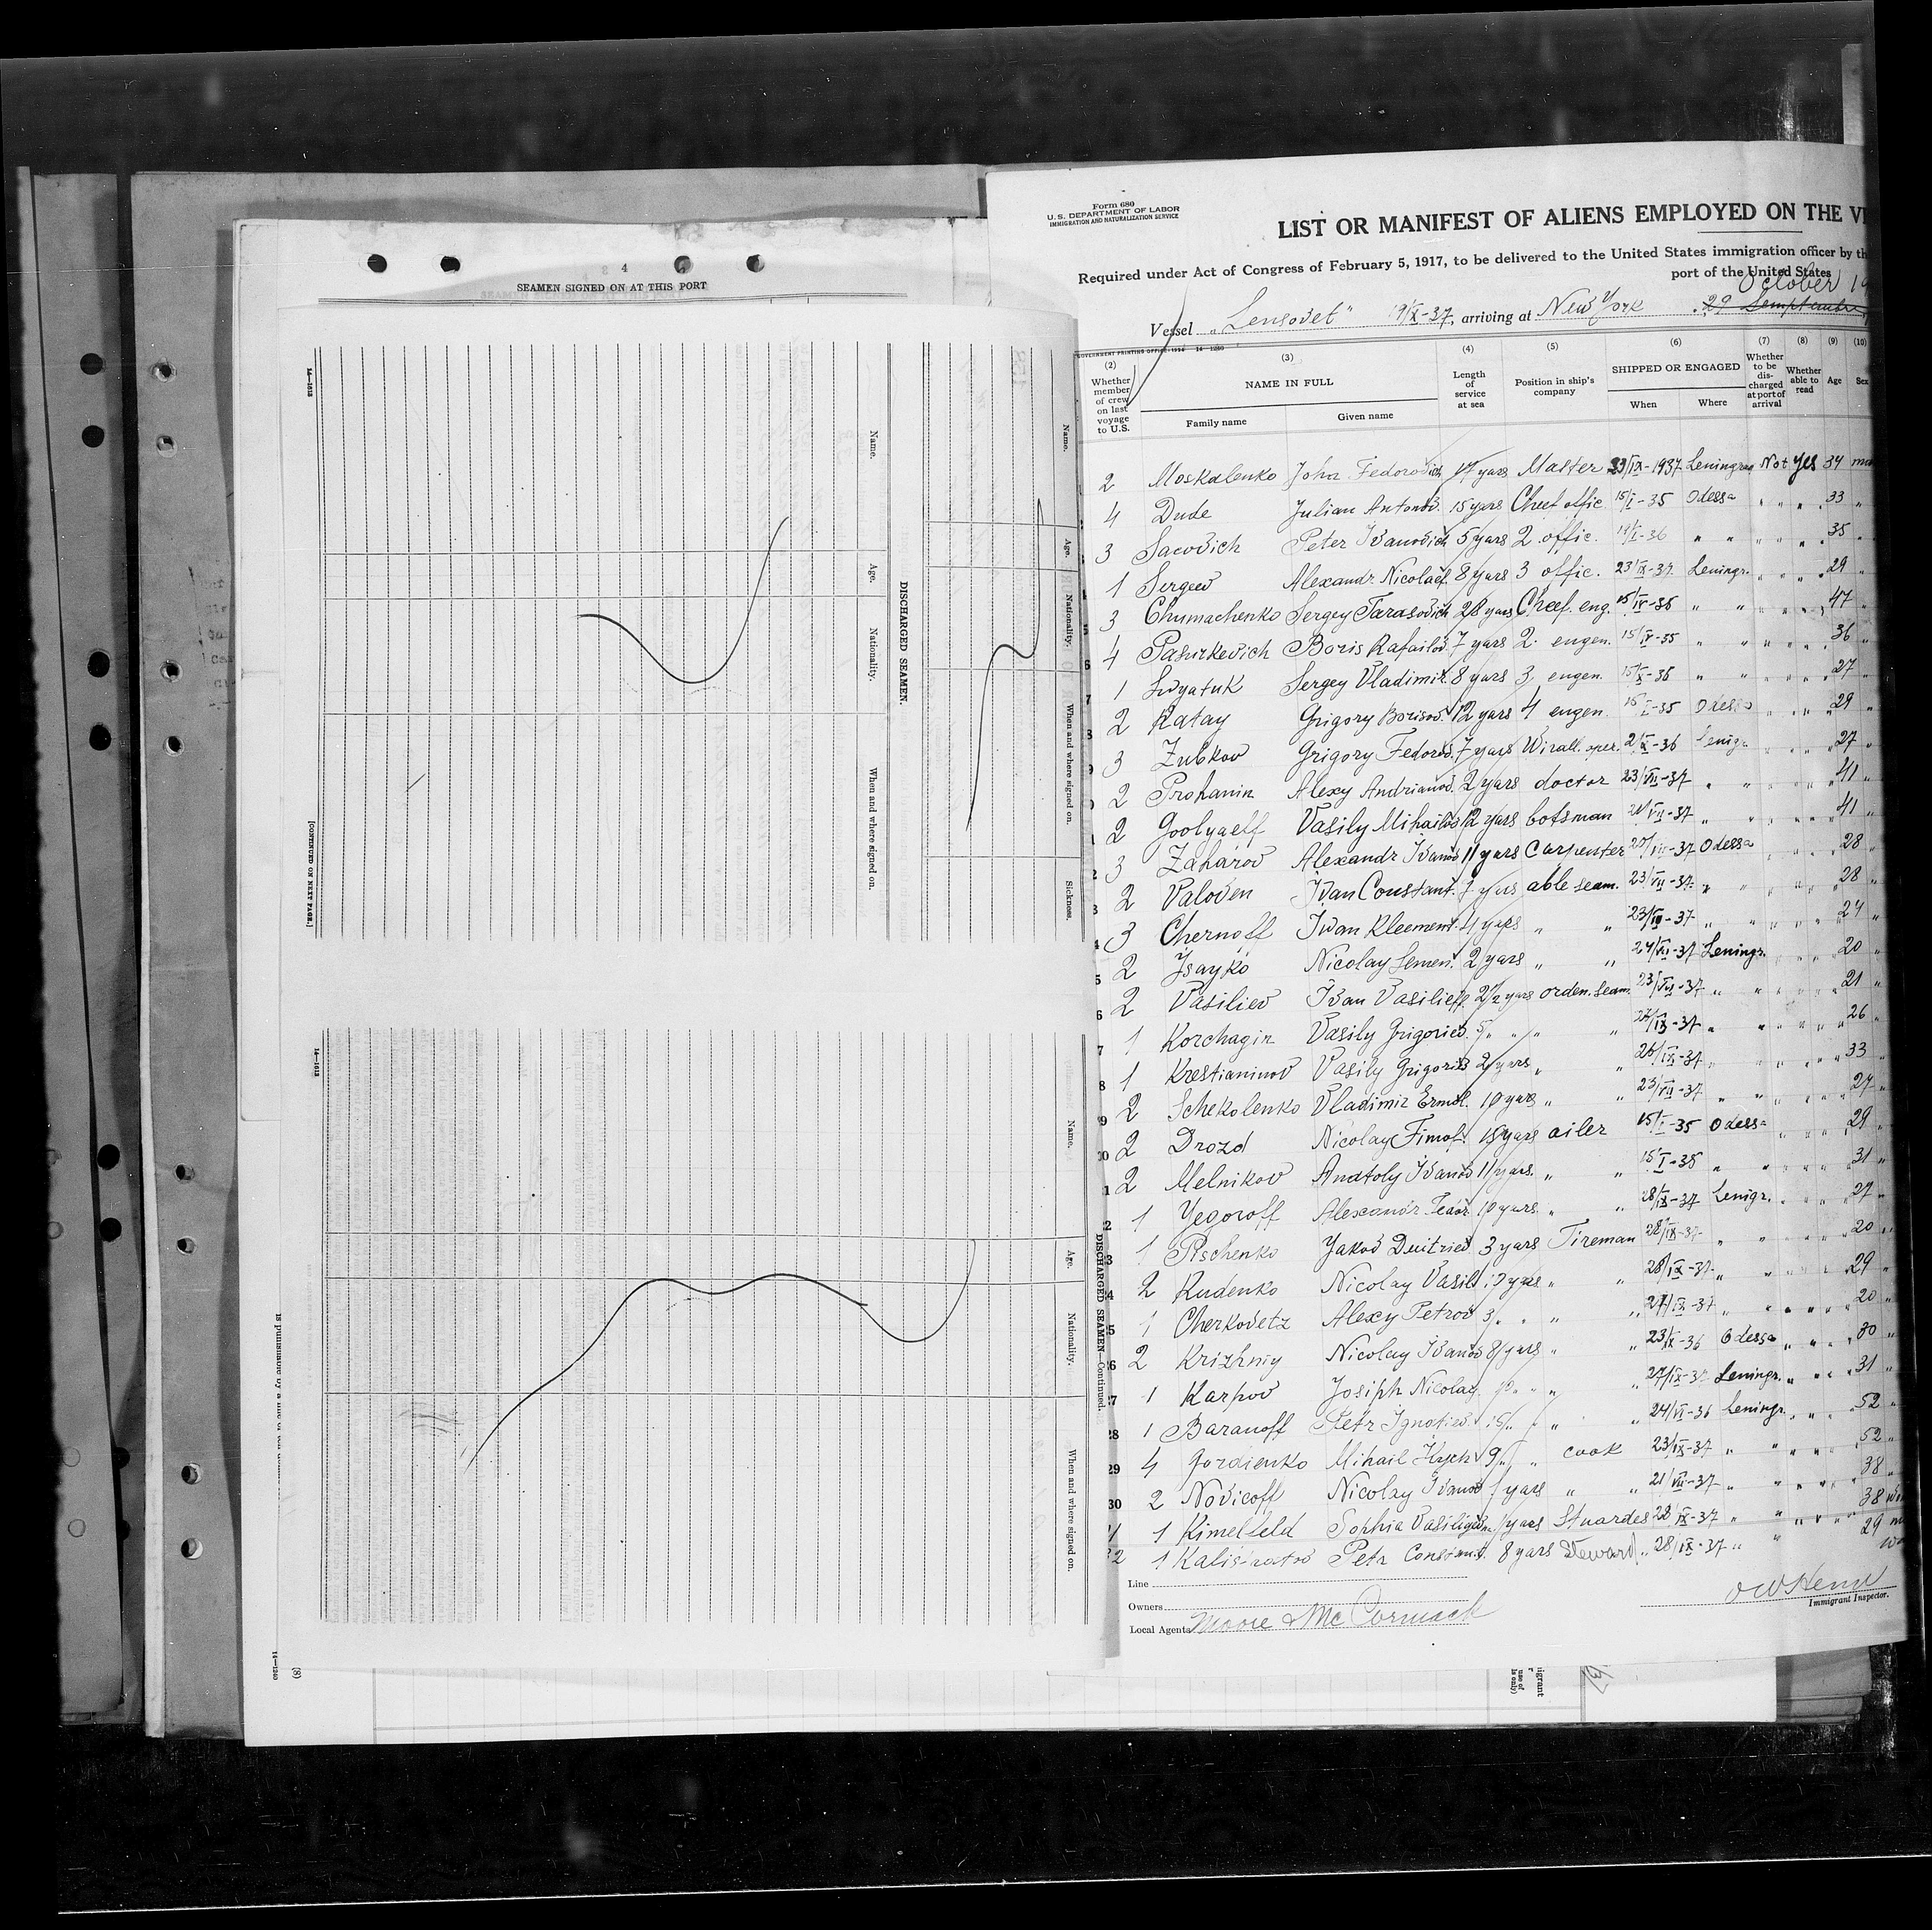 2 4
SEAMEN SIGNED ON AT THIS PORT
14—1613
Name. Age. Nationality. When and where signed on. Sickness.
DISCHARGED SEAMEN.
Name. Age. Nationality. When and where signed on.
[CONTINUED ON NEXT PAGE.]
14—1613
DISCHARGED SEAMEN—Continued.
Name. Age. Nationality. When and where signed on.
14—1240
(8)
Form 680
U.S. DEPARTMENT OF LABOR
IMMIGRATION AND NATURALIZATION SERVICE
LIST OR MANIFEST OF ALIENS EMPLOYED ON THE
Required under Act of Congress of February 5, 1917, to be delivered to the United States immigration officer by
port of the United States
October 19
Vessel "Lensovet" 19/IX-37, arriving at New York 29 Semptember
GOVERNMENT PRINTING OFFICE: 14—1240
(2) (3) (4) (5) (6) (7) (8) (9) (10)
Whether member of crew on last voyage to U.S. NAME IN FULL Length of service at sea Position in ship's company SHIPPED OR ENGAGED Whether to be discharged at port of arrival Whether able to read Age Sex
Family name Given name When Where
2 Moskalenko John Fedorovich 17 years Master 23/IX-1937 Leningrag Not yes 34
4 Dude Julian Antonov. 15 years Cheef offic 15/I-35 Odessa " " " 33 "
3 Sacovich Peter Ivanovich 5 yars 2 offic. 19/I-36 " " " " " 35 "
1 Sergeev Alexandr Nicolaef. 8 years 3 offic. 23/IX-37. Leningr. " " " 29 "
3 Chumachenko Sergey Tarasovich 28 years Cheef. eng. 15/IV-36 " " " " " 47 "
4 Pasurkevich Boris Rafailov. 7 yars 2. engen. 15/IV-35 " " " " " 36 "
1 Svyatuk Sergey Vladimir. 8 years 3 engen. 15/X-36 " " " " " 27 "
2 Katay Grigory Borisov. 12 yars 4 engen. 15/I-35 Odessa " " " 29 "
3 Zubkov Grigory Fedorov. 7 yars Wirall. oper. 2/X-36 Lenigr. " " " 27 "
2 Prohanin Alexy Andrianov. 2 yars doctor 23/VII-37 " " " " " 41 "
2 Goolyaeff Vasily Mihailov 12 yars botsman 21/VII-37 " " " " " 41 "
3 Zaharov Alexandr Ivanov 11 yars Carpenter 20/VII-37 Odessa " " " 28 "
2 Valoven Ivan Constant. yars able seam. 23/VII-37. " " " " " 28 "
3 Chernoff Ivan Kleement. 4 yars " " 23/VII-37 " " " " " 24 "
2 Isayko Nicolay Semen. 2 yars " " 24/VII-37 Leningr. " " " 20 "
2 Vasiliev Ivan Vasilieff. 2 1/2 years orden. seam. 23/VII-37 " " " " " 21 "
1 Korchagin Vasily Grigoriev. 5 " " " " 27/IX-37 " " " " " 26 "
1 Krestianinov Vasily Grigoriev 2 yars " " 25/IX-37 " " " " " 33 "
2 Schekolenko Vladimir Ermol. 10 yars " " 23/VII-37 " " " " " 27 "
2 Drozd Nicolay Timof. 15 yars oiler 15/I-35 Odessa " " " 29 "
2 Melnikov Anatoly Ivanov 11 yars. " " 15/I-35 " " " " " 31 "
1 Yegoroff Alexandr Fedor. 10 yars. " " 28/IX-37 Lenigr. " " " 27 "
1 Pischenko Yakov Dmitriev 3 yars Fireman 28/IX-37 " " " " " 20 "
2 Rudenko Nicolay Vasil. 10 yars " " 28/IX-37 " " " " " 29 "
1 Cherkovetz Alexy Petrov 3 " " " " 27/IX-37 " " " " " 20 "
2 Krizhniy Nicolay Ivanov 8 yars " " 23/X-36 Odessa " " " 30 "
1 Karpov Josiph Nicolay. 10 " " " " 27/IX-37 Leningr. " " " 31 "
1 Baranoff Petr Ignatiev. 15 " " " " 24/VI-36 Leningr. " " " 52 "
4 Gordienko Mihail Ilyich 9 " " cook 23/IX-37 " " " " " 52 "
2 Novicoff Nicolay Ivanov 1 yars " " 21/VII-37 " " " " " 38 "
1 Kimelfeld Sophia Vasilievn. 1 years Stuardes 28/IX-37 " " " " " 38
1 Kalistratov Petr Constant. 8 yars Steward. 28/IX-37 " " 29
Line
Owners
Local Agents Moore & Mc Cormack
Immigrant Inspector.